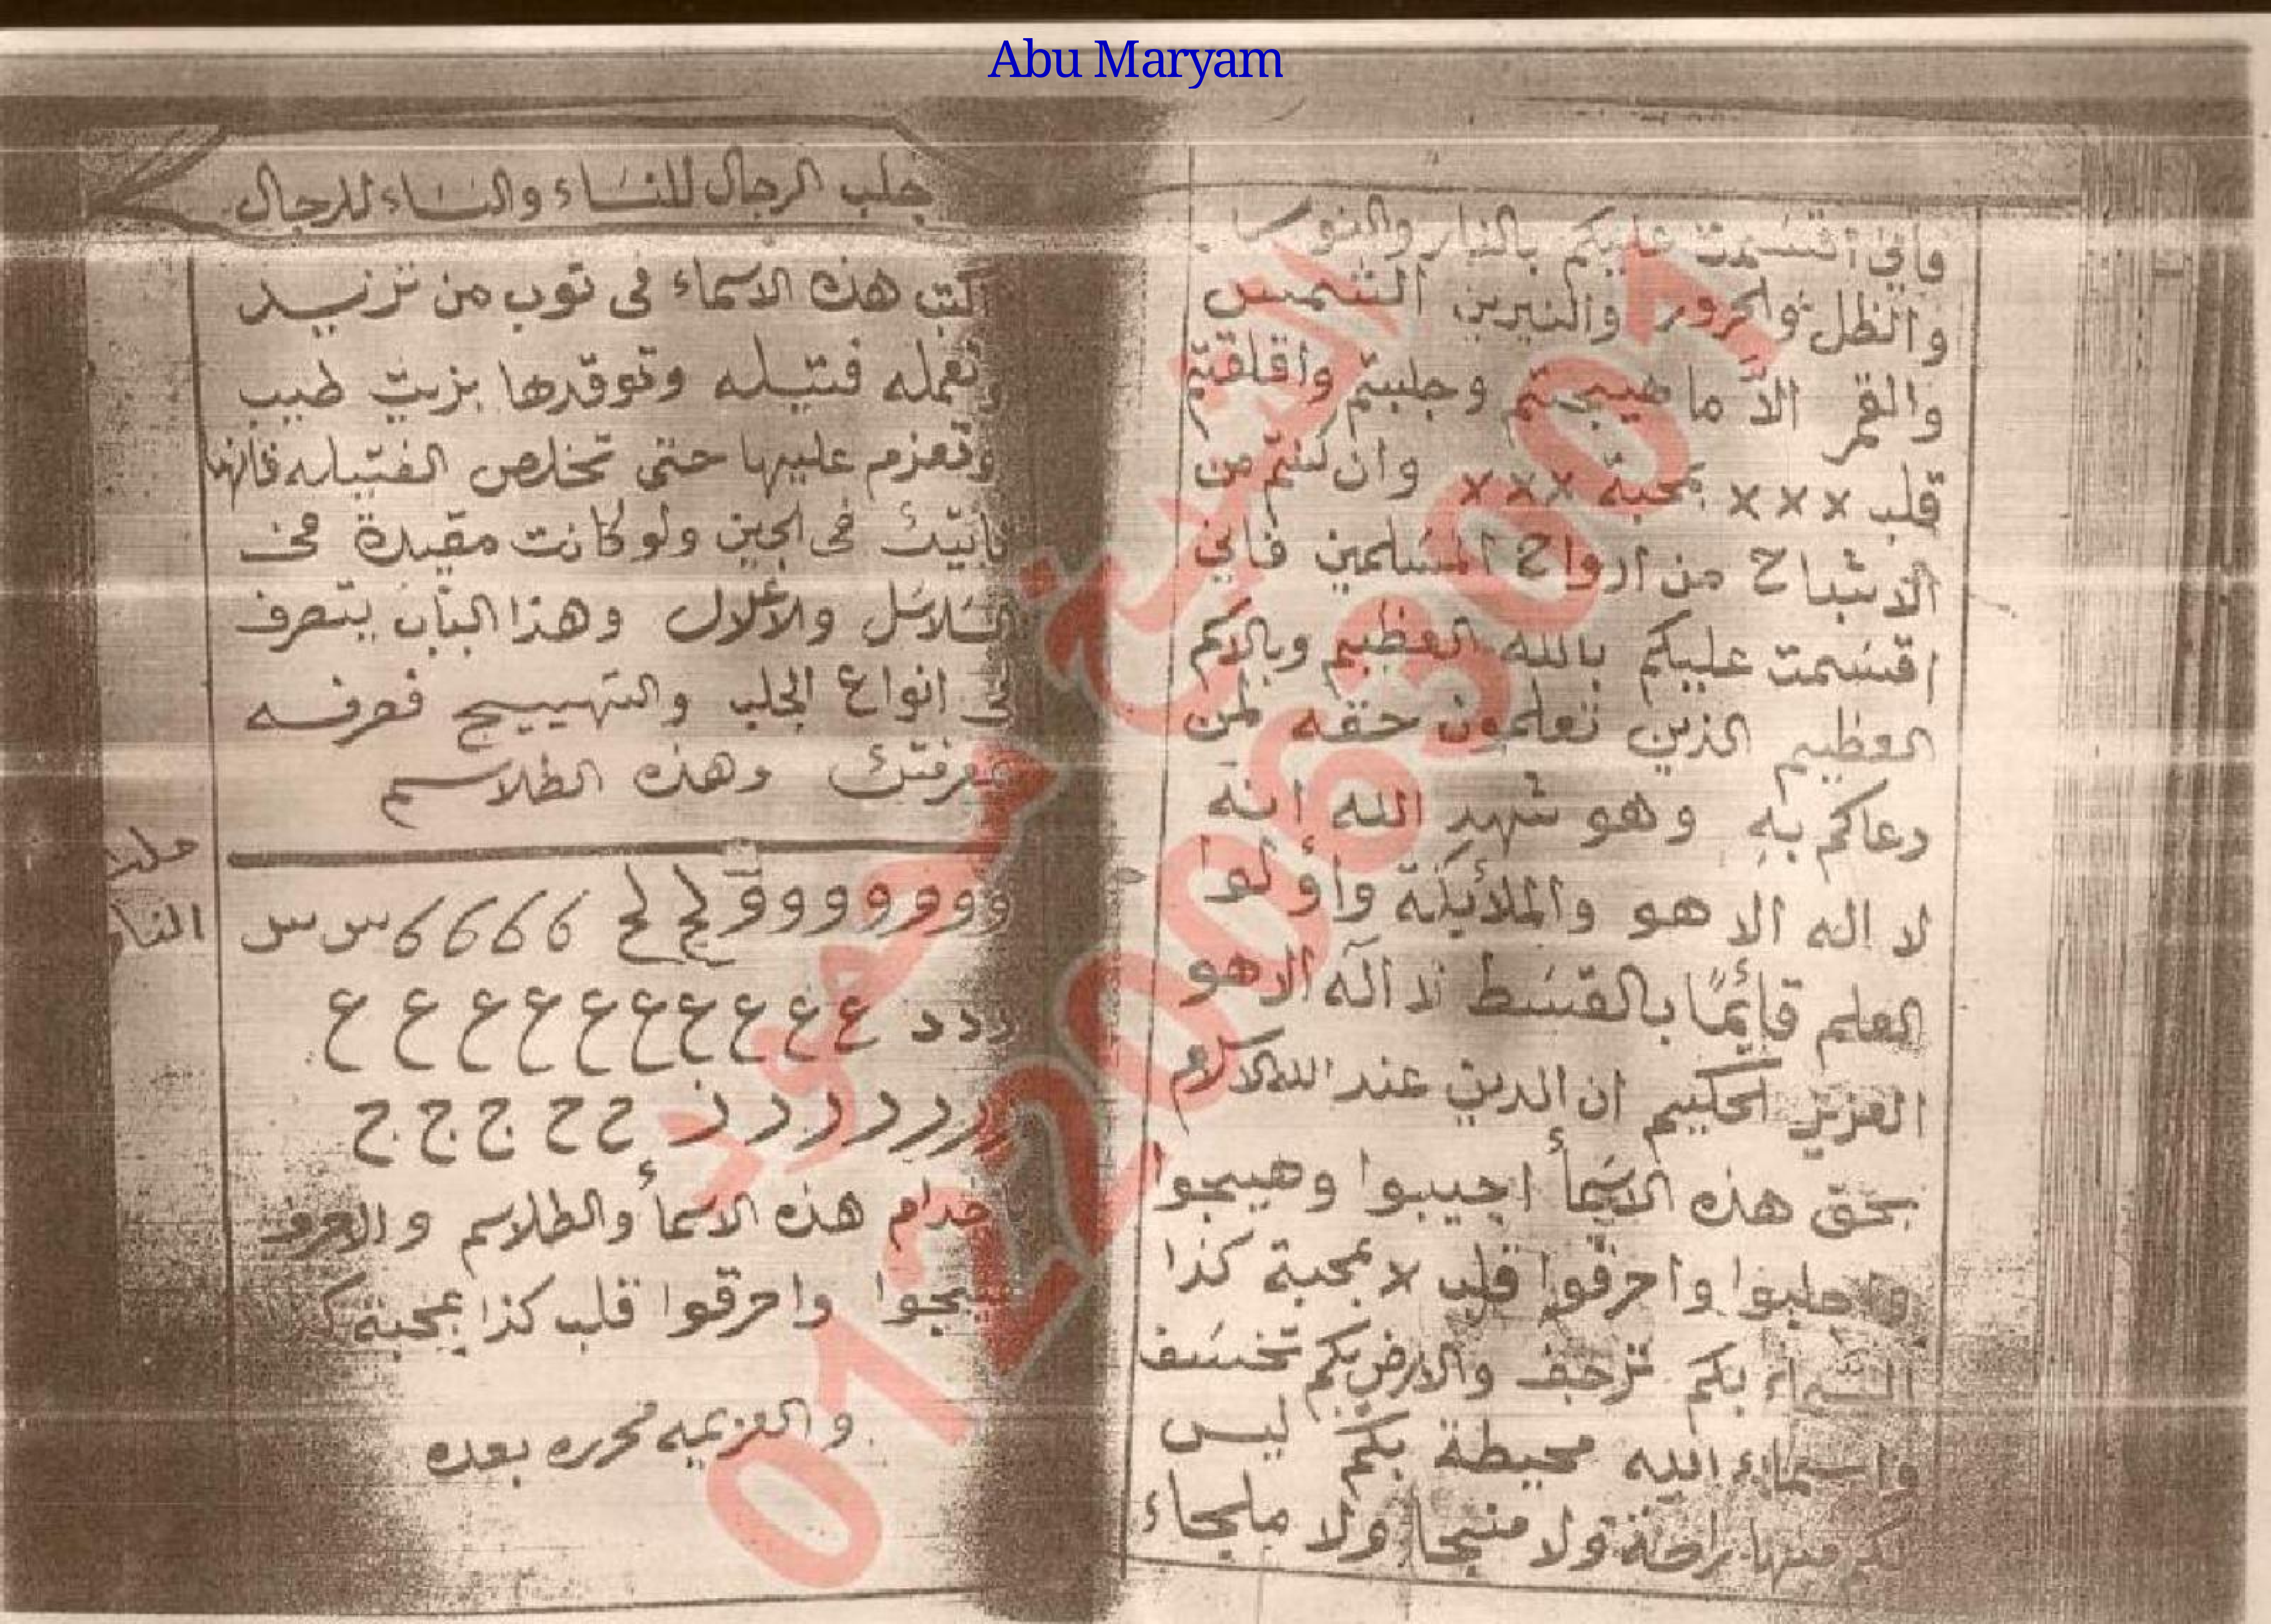 Abu Maryam
فاني اقسمت عليكم بالنار والنور
والظل والحرور والنيرين الشمس
والقمر الا ما هيجتم وجلبتم واقلقتم
قلب ××× بمحبة ××× وان كنتم من
الاشباح من ارواح المسلمين فاني
اقسمت عليكم بالله العظيم وبالاكم
العظيم الذين تعلمون حقه لمن
دعاكم به وهو شهد الله انه
لا اله الا هو والملائكة واولوا
العلم قائمًا بالقسط لا اله الا هو
العزيز الحكيم ان الدين عند الله
بحق هذه الاسمأ اجيبوا وهيجوا
واجلبوا واحرقوا قلب لا بمحبة كذا
السماء بكم ترجف والارض بكم تخسف
واسماء الله محيطة بكم ليس
لكم منها راحة ولا منجا ولا ملجاء
جلب الرجال للنساء والنساء للرجال
تكتب هذه الاسماء فى توب من تزيد
وتعمله فتيله وتوقدها بزيت طيب
وتعزم عليها حتى تخلص الفتيله فانها
تاتيك فى الحين ولو كانت مقيدة فى
السلاسل والاغلال وهذا الباب يتصرف
فى انواع الجلب والتهييج فعرفه
معرفتك وهذه الطلاسم
ووووووو لح لح 6666 س س
ددد ع ع ع ع ع ع ع ع ع ع
ررررررر ح ح ج ج ج
خدام هذه الاسمأ والطلاسم والحرف
هيجوا واحرقوا قلب كذا بمحبة ك
والعزيمه محرره بعده
جلب
النسا
01220063001